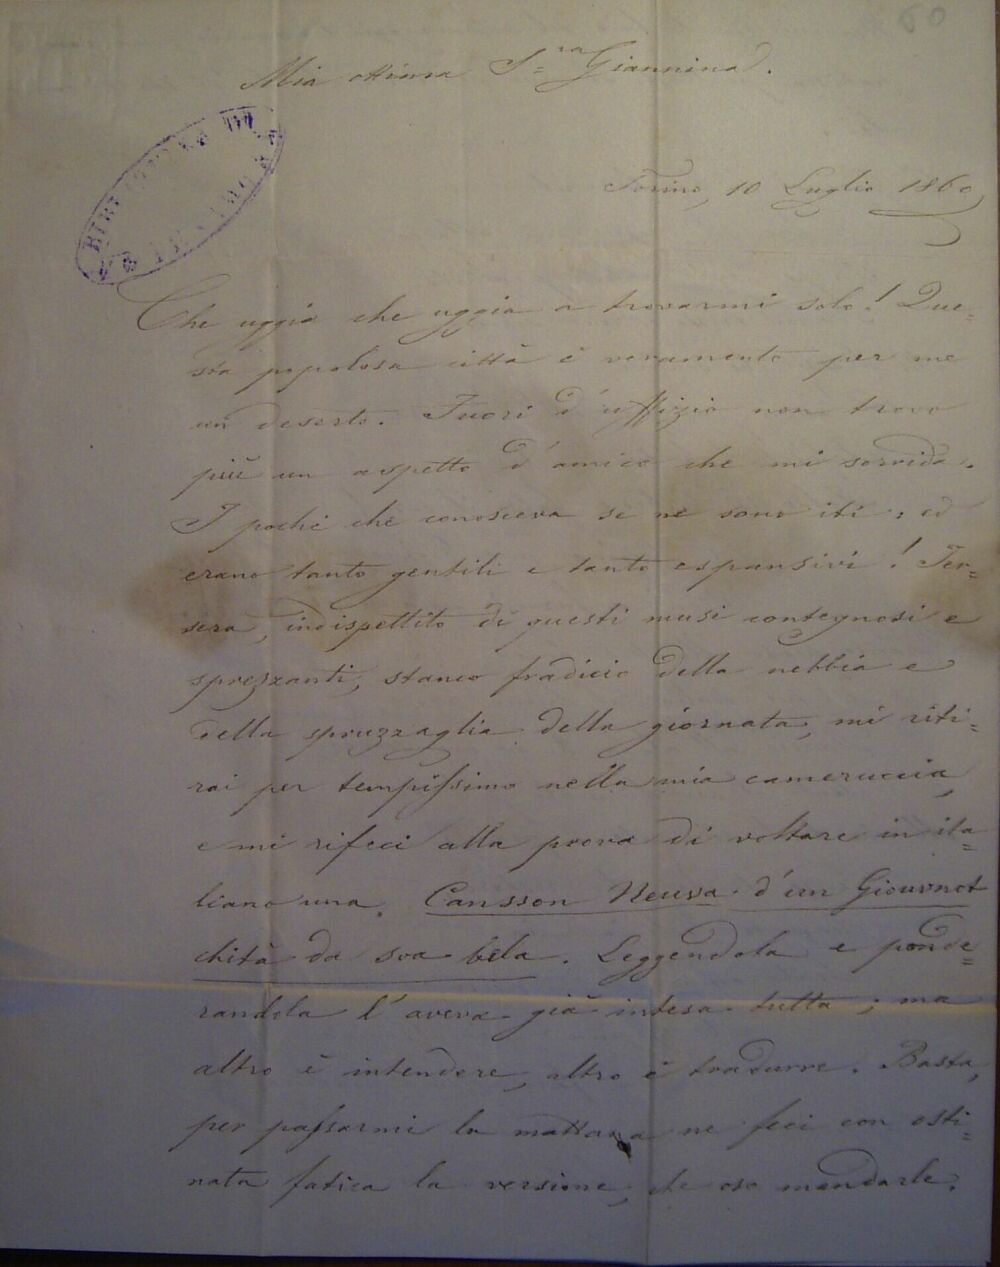 60
Mia ottima S.ra Giannina.
BIBLIOTECA DI
BERGAMO
Torino, 10 Luglio 1860,
Che uggia che uggia a trovarmi solo! Que=
sta popolosa città è veramente per me
un deserto. Fuori d'uffizio non trovo
più un aspetto d'amico che mi sorrida.
I pochi che conosceva se ne sono iti; ed
erano tanto gentili e tanto espansivi! Jer=
sera, indispettito di questi musi contegnosi e
sprezzanti, stanco fradicio della nebbia e
della spruzzaglia della giornata, mi riti=
rai per tempissimo nella mia cameruccia,
e mi rifeci alla prova di voltare in ita=
liano una Cansson Neuva d'un Giouvnot
chità da soa bela. Leggendola e ponde=
randola l'aveva già intesa tutta; ma
altro è intendere, altro è tradurre. Basta,
per passarmi la mattana ne feci con osti=
nata fatica la versione, che oso mandarle.